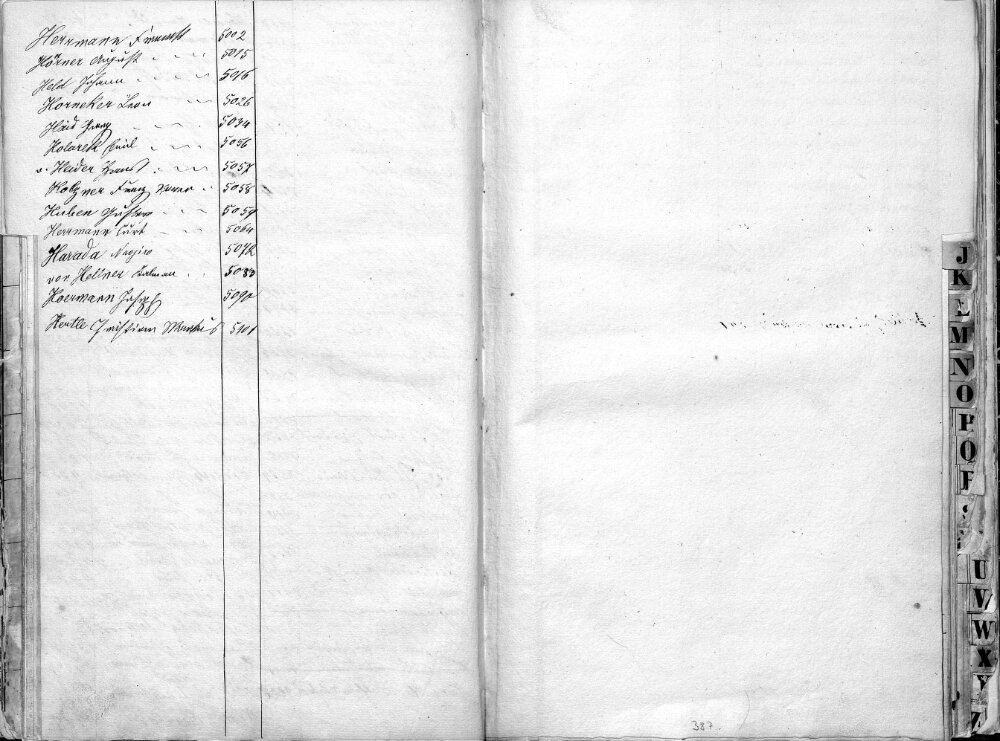 Herrmann 5002
Hörner August 5015
Held Johann 5016
Horneker Leon 5026
Haid Georg 5034
Holarek Emil 5056
v. Heider 5057
Holzner Franz Xaver 5058
Huben Gustav 5059
Herrmann Curt 5064
Harada Naojiro 5072
von Hellner 5083
Hoermann Joseph 5090
Hertle Christian Markus 5101
J
K
L
M
N
O
P
Q
R
S
U
V
W
X
Y
Z
387